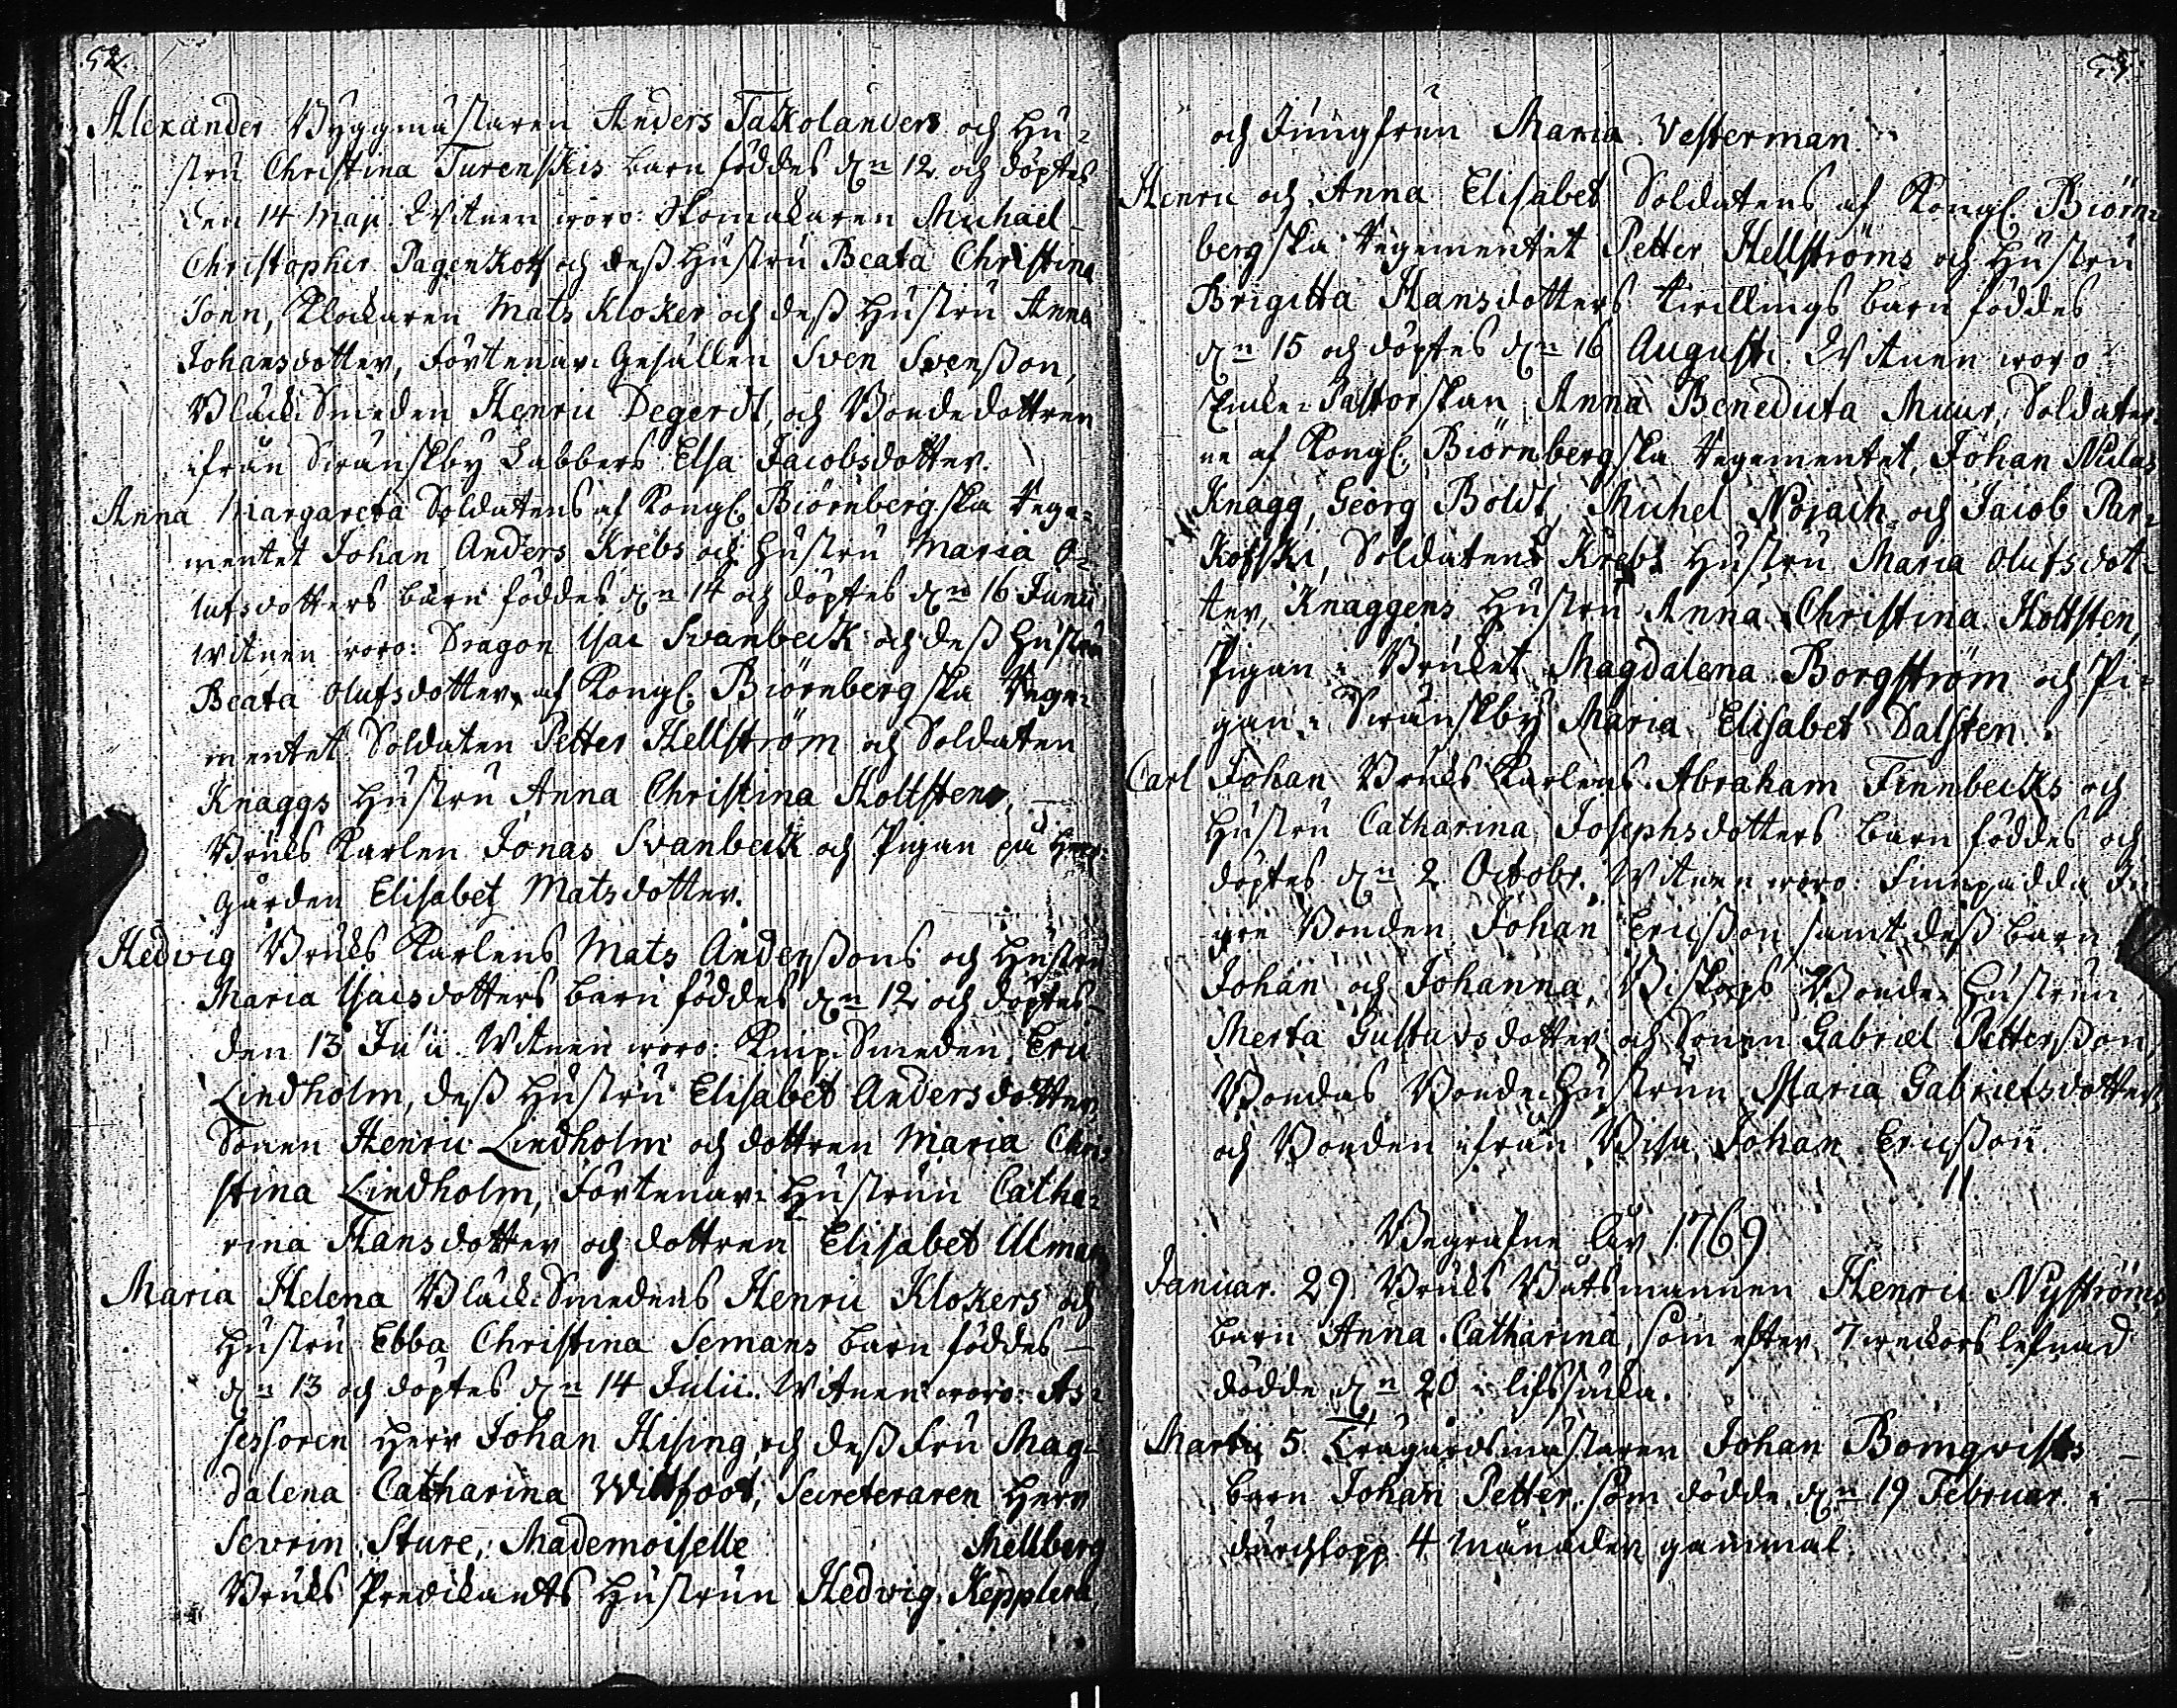 52.
Alexander Byggmästaren Anders Takolanders och Hu=
stru Christina Turenskis barn föddes dn 12 och döptes
den 14 Maji. Witnen woro: Skomakaren Michael
Christopher Pagenkoff och dess Hustru Beata Christina
Sonn, Klockaren Mats Kloker och dess Hustru Anna
Johansdotter, Förtenar-Gesällen Sven Svensson,
Bläck-Smeden Henric Degerdt, och Bondedottren
ifrån Swänskby Labbers Elsa Jacobsdotter.
Anna Margareta Soldatens af Kongl. Biörnbergska Rege=
mentet Johan Anders Krebs och Hustru Maria O=
lufsdotters barn föddes dn 14 och döptes dn 16 Junii
Witnen woro: Dragon Isac Svanbeck och dess Hustru
Beata Olufsdotter, af Kongl. Biörnbergska Rege=
mentet Soldaten Petter Hellström och Soldaten
Knaggs Hustru Anna Christina Holtsten,
Bruks Karlen Jonas Svanbeck och Pigan på Herr-
gården Elisabet Matsdotter.
Hedvig Bruks Karlens Mats Anderssons och Hustru
Maria Isacsdotters barn föddes dn 12 och döptes
den 13 Julii. Witnen woro: Knip-Smeden Eric
Lindholm, dess Hustru Elisabet Andersdotter,
Sonen Henric Lindholm och dottren Maria Chri=
stina Lindholm, Förtenar-Hustrun Catha=
rina Hansdotter och dottren Elisabet Ulman
Maria Helena Bläck-Smedens Henric Klokers och
Hustru Ebba Christina Semans barn föddes
dn 13 och döptes dn 14 Julii. Witnen woro: As=
sessoren Herr Johan Hising och dess Fru Mag=
dalena Catharina Wittfoot, Secreteraren Herr
Sevrin Sture, Mademoiselle Mellberg
Bruks Predikants Hustrun Hedvig Kepplera,
53.
och Jungfrun Maria Vesterman.
Henric och Anna Elisabet Soldatens af Kongl. Biörn=
bergska Regementet Petter Hellströms och Hustru
Brigitta Hansdotters twillings barn föddes
dn 15 och döptes dn 16 Augusti. Witnen woro:
Enke-Pastorskan Anna Benedicta Muur, Soldater=
ne af Kongl. Biörnbergska Regementet, Johan Niclas
Knagg, Georg Boldt, Michel Nojach och Jacob Par=
kofski, Soldatens Krebs Hustru Maria Olufsdot=
ter, Knaggens Hustru Anna Christina Holtsten,
Pigan i Bruket Magdalena Borgström och Pi=
gan i Swänskby Maria Elisabet Dalsten.
Carl Johan Bruks Karlens Abraham Finnbecks och
Hustru Catharina Josephsdotters barn föddes och
döptes dn 2 Octobr. Witnen woro: Finnpadda In=
gre Bonden Johan Ericsson samt dess barn
Johan och Johanna, Biskops Bonde-Hustrun
Merta Gustavsdotter och Sonen Gabriel Pettersson,
Bondas Bonde-Hustrun Maria Gabrielsdotter
och Bonden ifrån Bisa Johan Ericsson.
11.
Begrafne år 1769
Januar. 29. Bruks Båtsmannen Henric Nyströms
barn Anna Catharina, som efter 7 weckors lefnad
dödde dn 20 i lifssiuka.
Martii 5. Trägårdsmästaren Johan Bomqvists
barn Johan Petter, som dödde dn 19 Februar. i
durchlopp 4 Månader gammal.